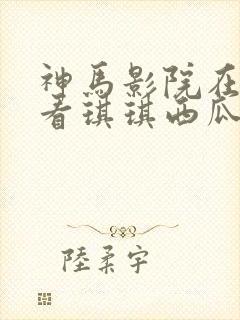 神馬影院在
看琪琪西瓜
陸柔宇